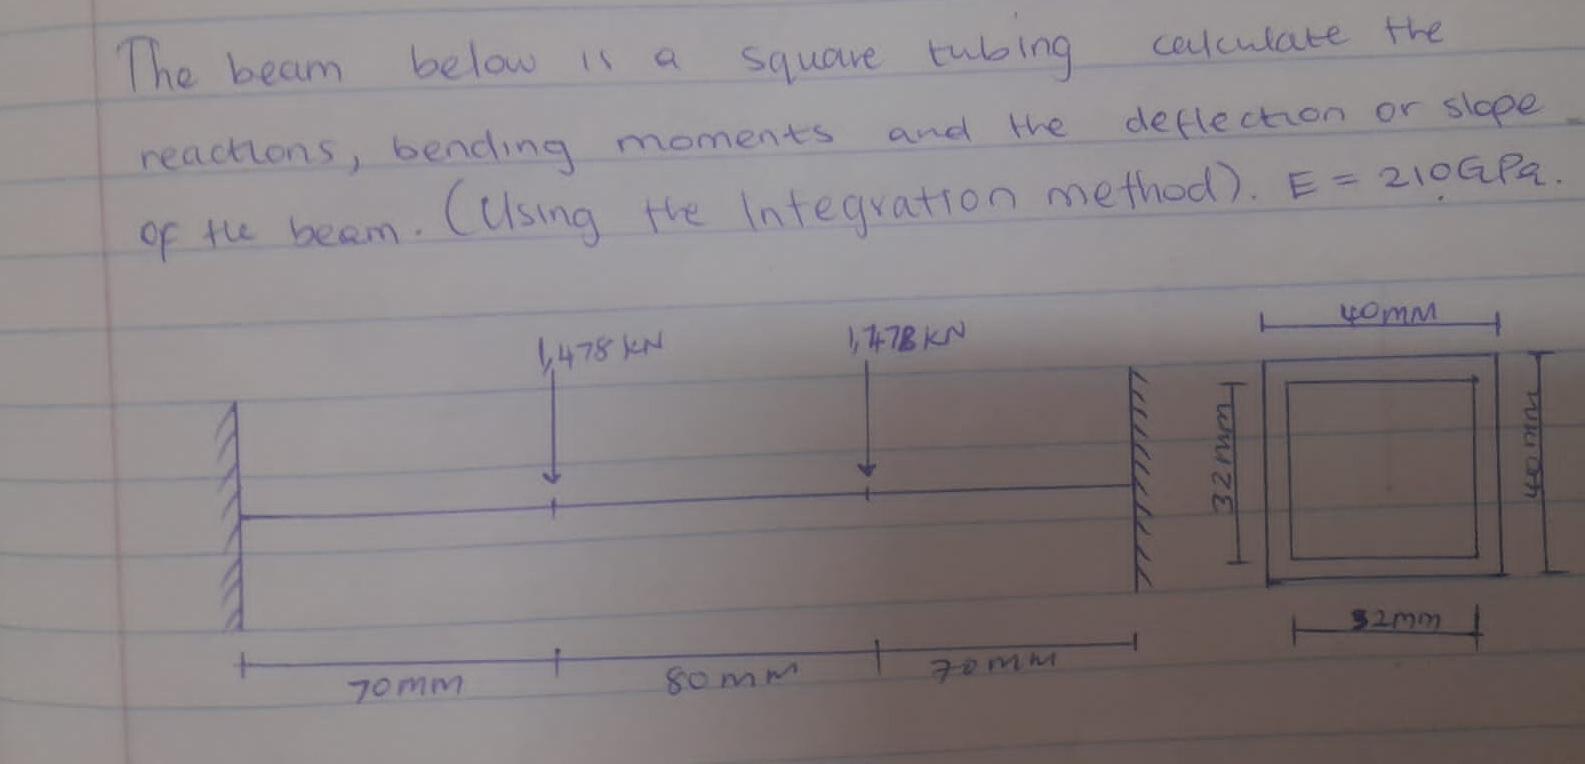 The beam below is a square tubing calculate the
reactions, bending moments and the deflection or slope
of the beam. (Using the Integration method). E = 210GPa.
1,478 KN
1,478 KN
40mm
32mm
40mm
32mm
70mm
80mm
70mm